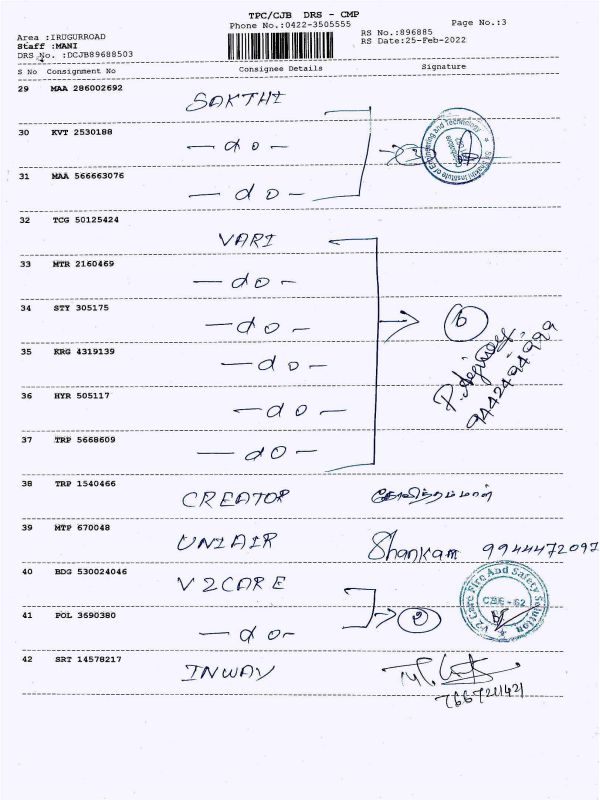 TPC/CJB DRS - CMP
Phone No.:0422-3505555
Page No.:3
Area :IRUGURROAD
RS No.:896885
Staff :MANI
RS Date:25-Feb-2022
DRS No. :DCJB89688503
S No Consignment No Consignee Details Signature
29 MAA 286002692 SAKTHI
30 KVT 2530188 — do —
31 MAA 566663076 — do —
32 TCG 50125424 VARI
33 MTR 2160469 — do —
34 STY 305175 — do —
6
35 KRG 4319139 — do —
9442494999
36 HYR 505117 — do —
37 TRP 5668609 — do —
38 TRP 1540466 CREATOR
39 MTP 670048 UNIAIR Shankar 9944472097
40 BDG 530024046 V2CARE
V2 Care Fire And Safety Solution
CBE-62
41 POL 3690380 — do — 2
42 SRT 14578217 INWAY